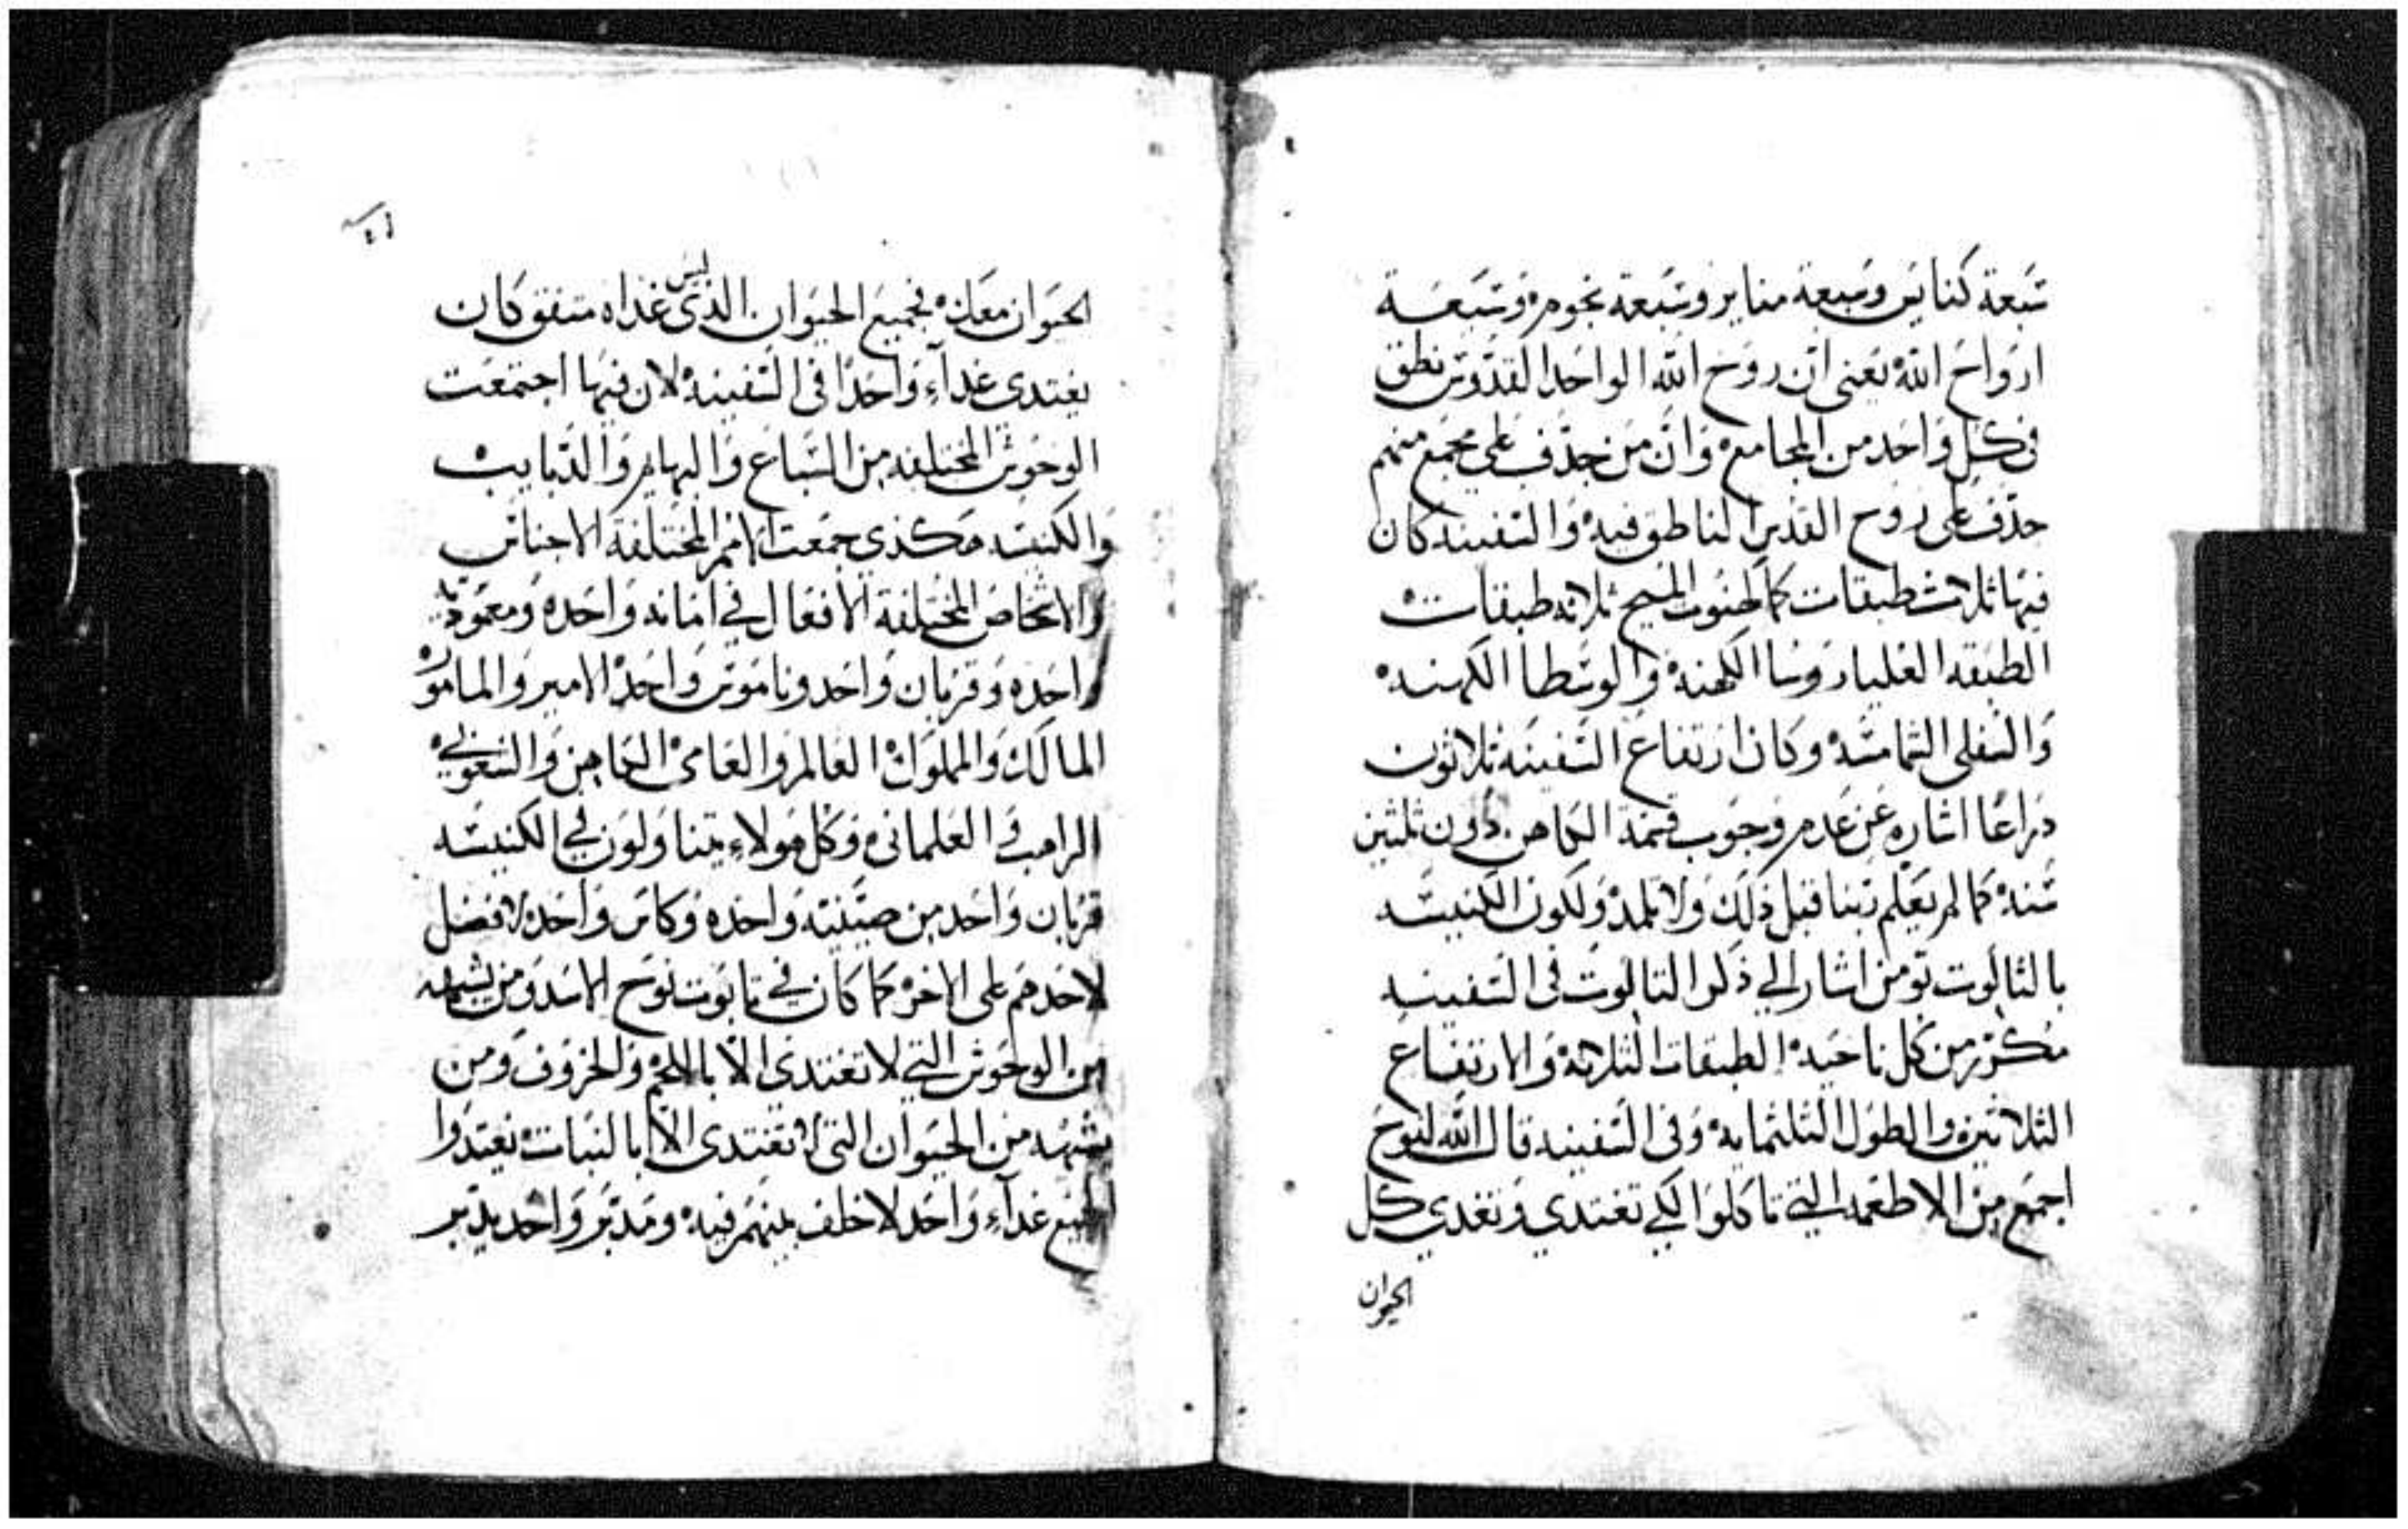 سبعة كنايس وسبعة مناير وسبعة نجوم وسبعة
ارواح الله يعنى ان روح الله الواحد القدوس نطق
فى كل واحد من المجامع وان من جدف على مجمع منهم
جدف على روح القدس الناطق فيه والسفينه كان
فيها ثلاث طبقات كالهنوت المسيح ثلاثه طبقات
الطبقه العليا روسا الكهنه والوسطا الكهنه
والسفلى الشمامسه وكان ارتفاع السفينه ثلاثون
دراعا اشاره عن عدم وجوب قسمة الكاهن دون ثلثين
سنه كما لم يعلم ربنا قبل ذلك ولا تلمد ولكون الكنيسه
بالثالوت تومن اشار الي ذكر التالوت فى السفينه
مكرر من كل ناحيه الطبقات الثلاثه والارتفاع
الثلاثين والطول الثلثمايه وفى السفينه قال الله لنوح
اجمع من الاطعمه التي تاكلوا لكي تغتدي وتغدي كل
الحيوان
الحيوان معك فجميع الحيوان الذى ليس غداه متفق كان
يغتدى غداء واحدا فى السفينه لان فيها اجتمعت
الوحوش المختلفه من السباع والبهايم والدبايب
والكنيسه هكذى جمعت الامم المختلفة الاجناس
والاشخاص المختلفة الافعال في امانه واحده ومعموديه
واحده وقربان واحد وناموس واحد الامير والمامور
المالك والمملوك العالم والعامى الكاهن والشعوبي
الراهب والعلمانى وكل هولاء يتناولون في الكنيسه
قربان واحد من صينيه واحده وكاس واحده لا فضل
لاحدهم على الاخر كما كان في تابوت نوح الاسد ومن يشبهه
من الوحوش التي لا تغتدى الا باللحم والخروف ومن
يشبهه من الحيوان التى لا تغتدى الا بالنبات يغتدوا
الجميع غداء واحد لا خلف بينهم فيه ومدبر واحد يدبر